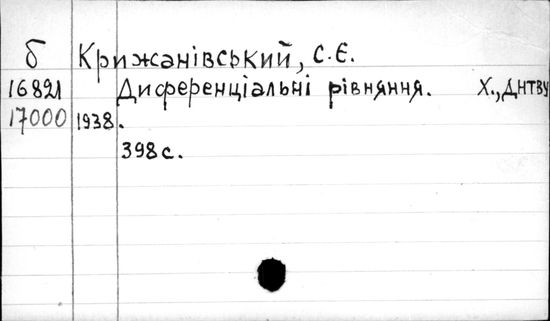 б Крижанівський, С.Є.
16821 Диференціальні рівняння. Х., ДНТВУ
17000 1938.
398 с.